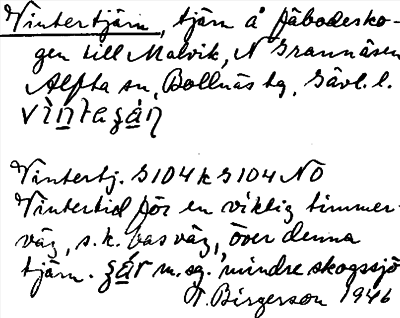 Vintertjärn, tjärn å fäbodesko-
gen till Malvik, N Grannäsen
Alfta sn, Bollnäs tg, Gävl. l.
Vintertj. G104k G104 NO
Vintertid för en viktig timmer-
väg, s.k. basväg, över denna
tjärn. m.sg. 'mindre skogssjö
T. Birgerson 1946